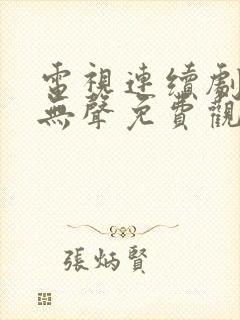 電視連續劇
無聲免費觀
張炳賢